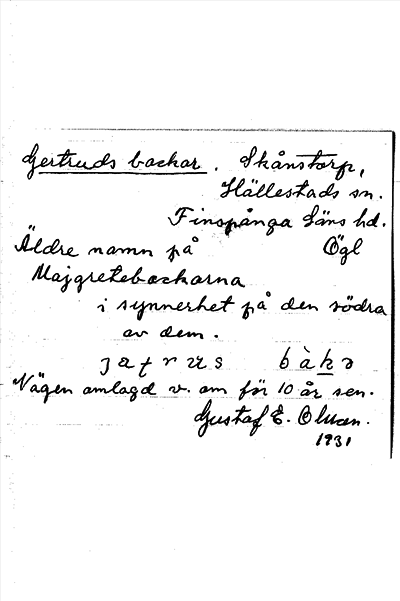 Gertruds backar. Skånstorp,
Hällestads sn.
Finspånga läns hd.
Äldre namn på Ögl
Majgretebackarna
i synnerhet på den södra
av dem.
jatrus bàkɘ
Vägen omlagd v. om för 10 år sen.
Gustaf E. Olsson.
1931